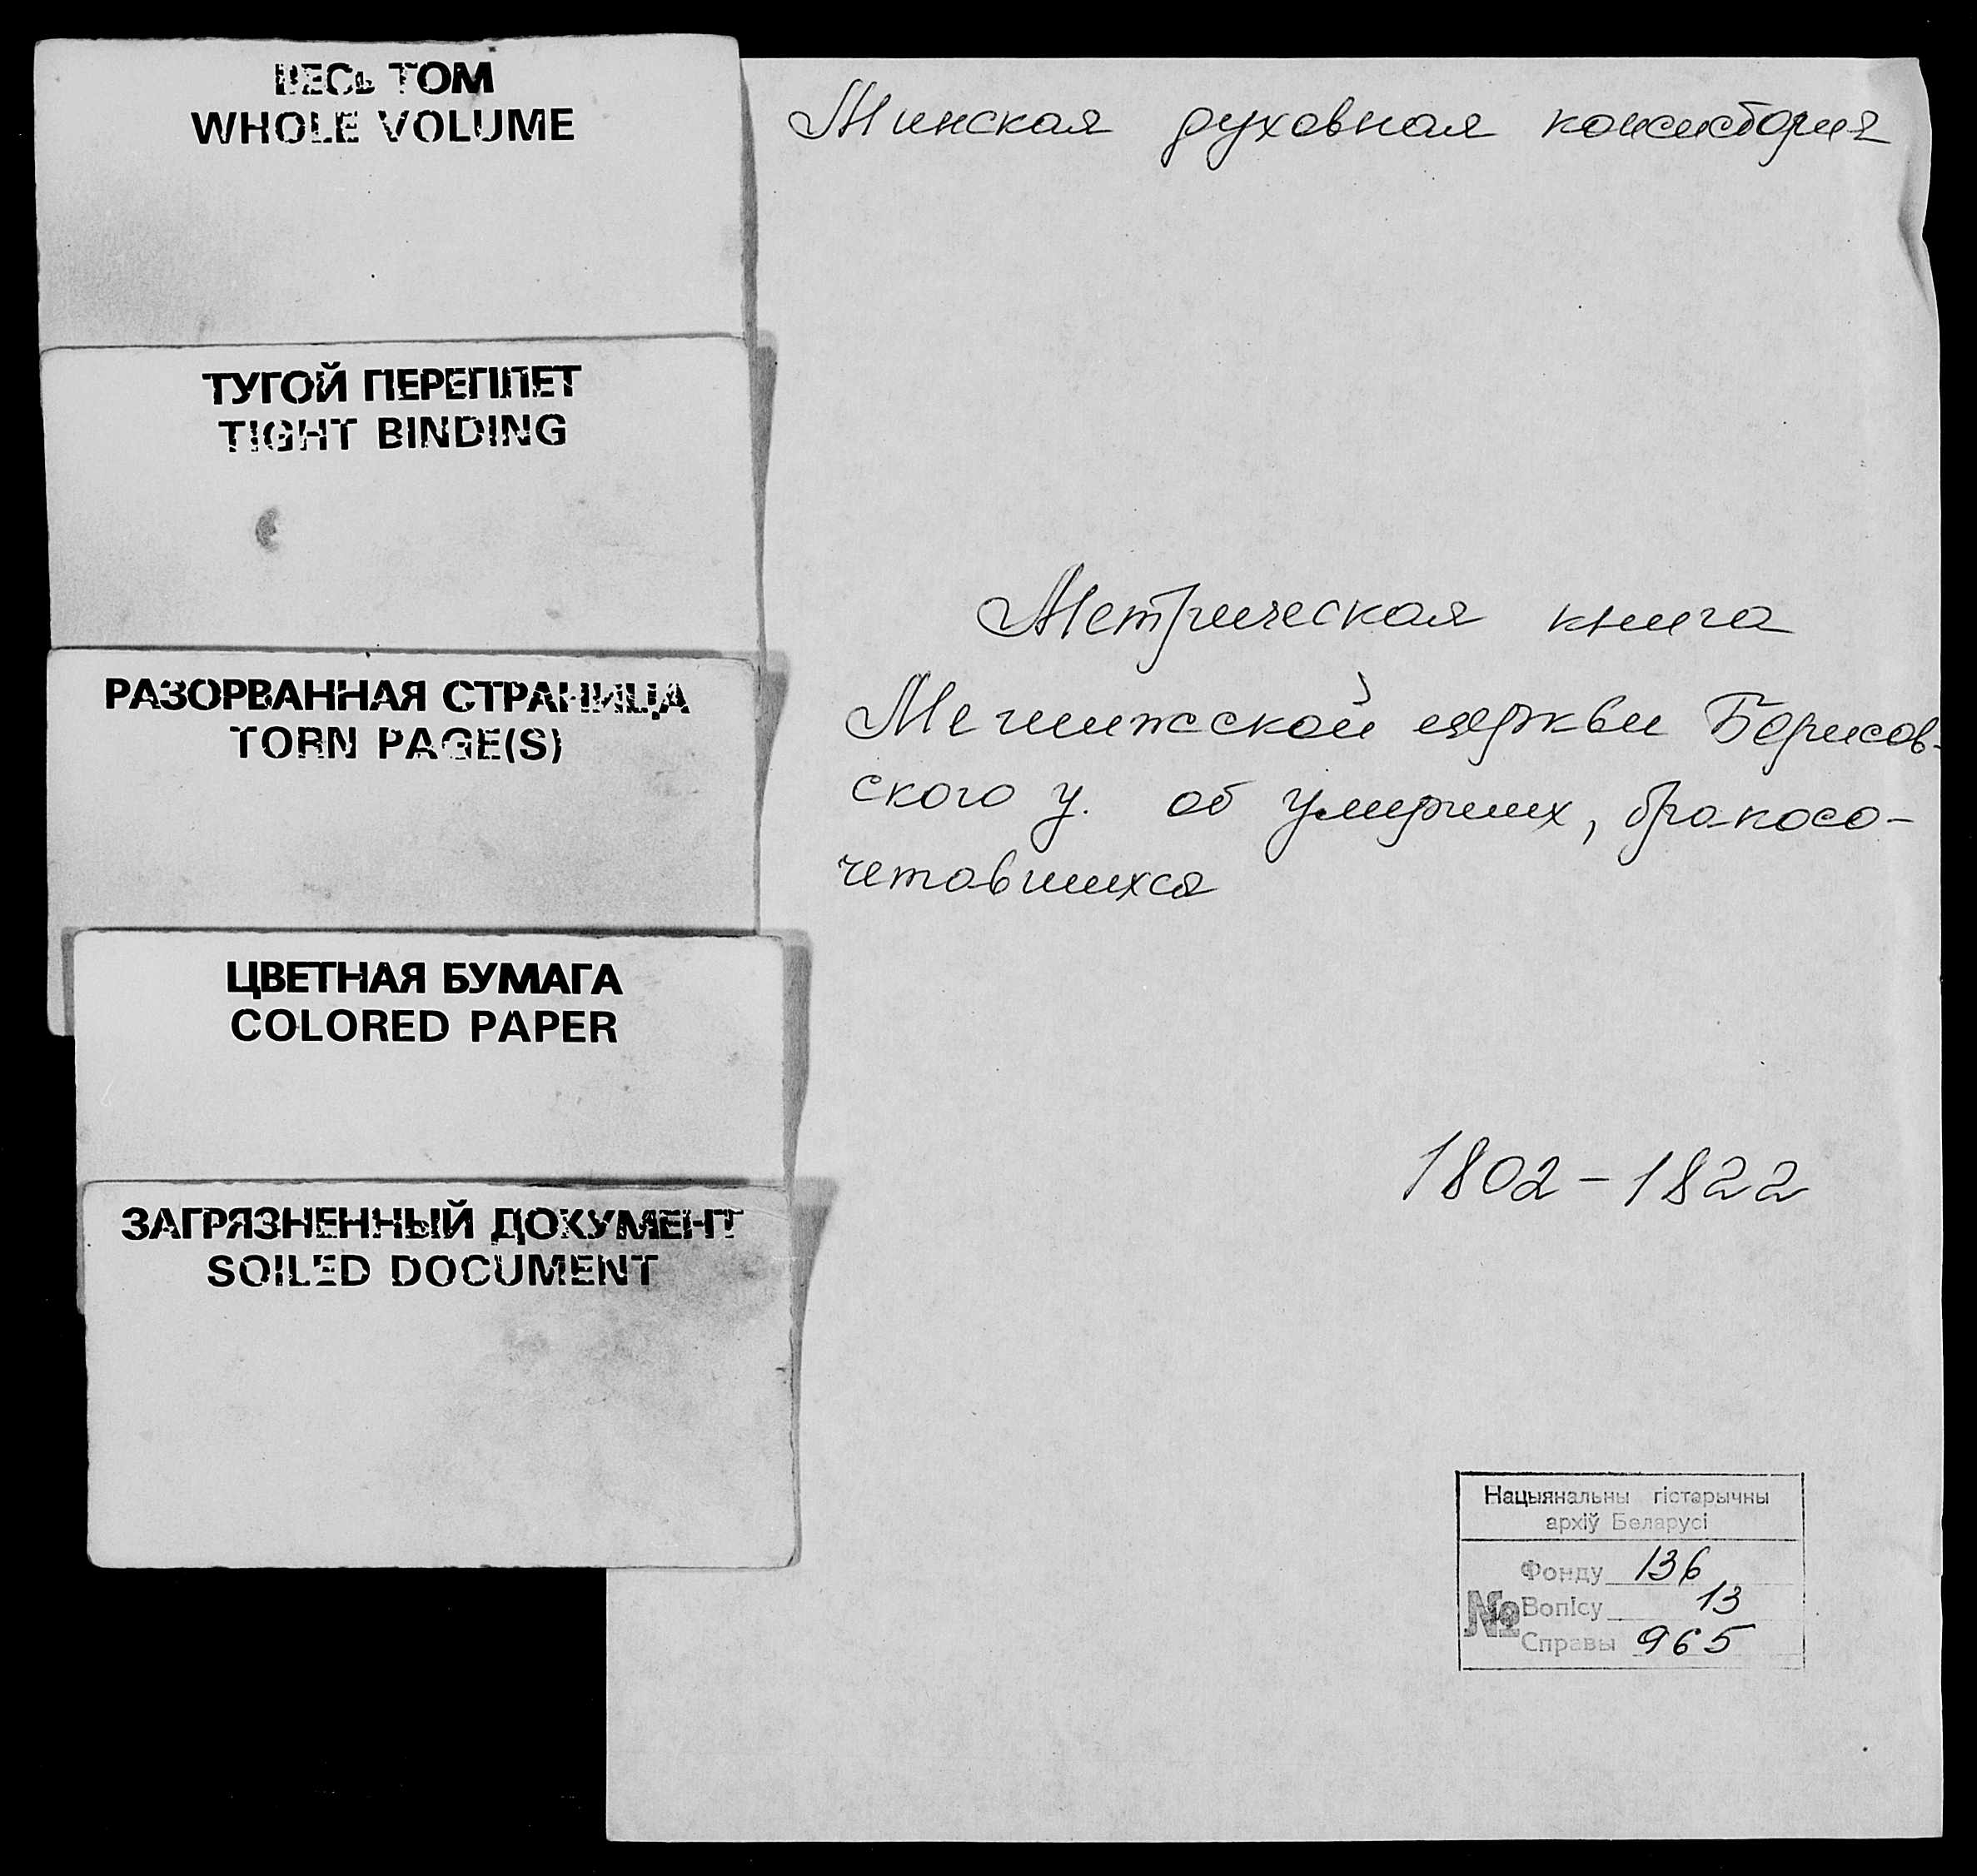 ВЕСЬ ТОМ
WHOLE VOLUME
ТУГОЙ ПЕРЕПЛЕТ
TIGHT BINDING
РАЗОРВАННАЯ СТРАНИЦА
TORN PAGE(S)
ЦВЕТНАЯ БУМАГА
COLORED PAPER
ЗАГРЯЗНЕННЫЙ ДОКУМЕНТ
SOILED DOCUMENT
Минская духовная консистория
Метрическая книга
Мегинжской церкви Борисов-
ского у. об умерших, бракосо-
четавшихся
1802-1822
Нацыянальны гістарычны
архіў Беларусі
Фонду 136
№ Вопісу 13
Справы 965